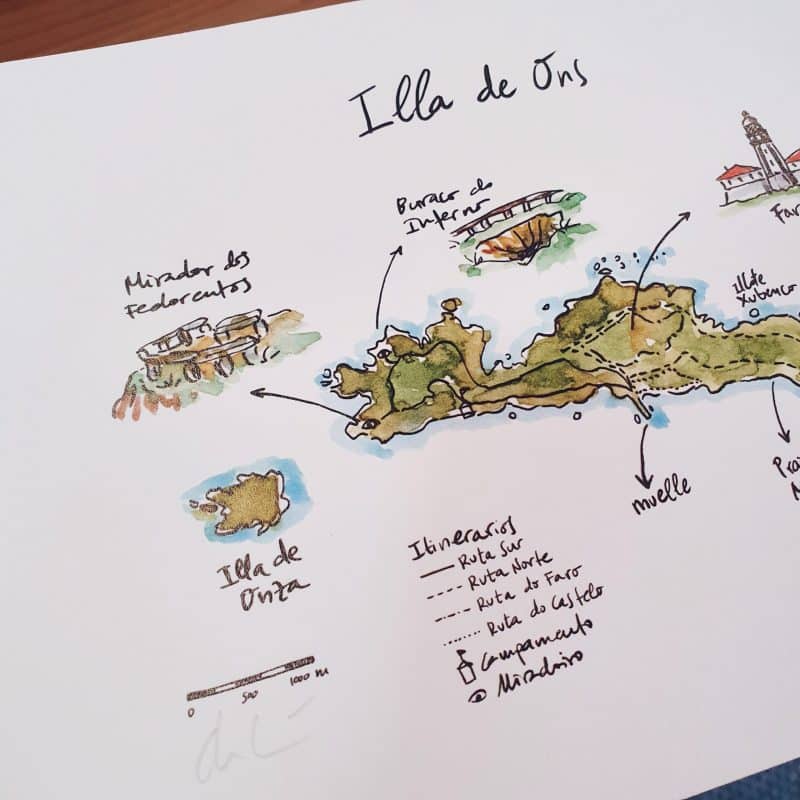 Illa de Ons
Buraco do
Inferno
Mirador dos
Fedorentos
Far
Illa de
Ónza
muelle
Itinerarios
Ruta Sur
Ruta Norte
Ruta do Faro
Ruta do Castelo
Campamento
Miradoiro
0 500 1000 m